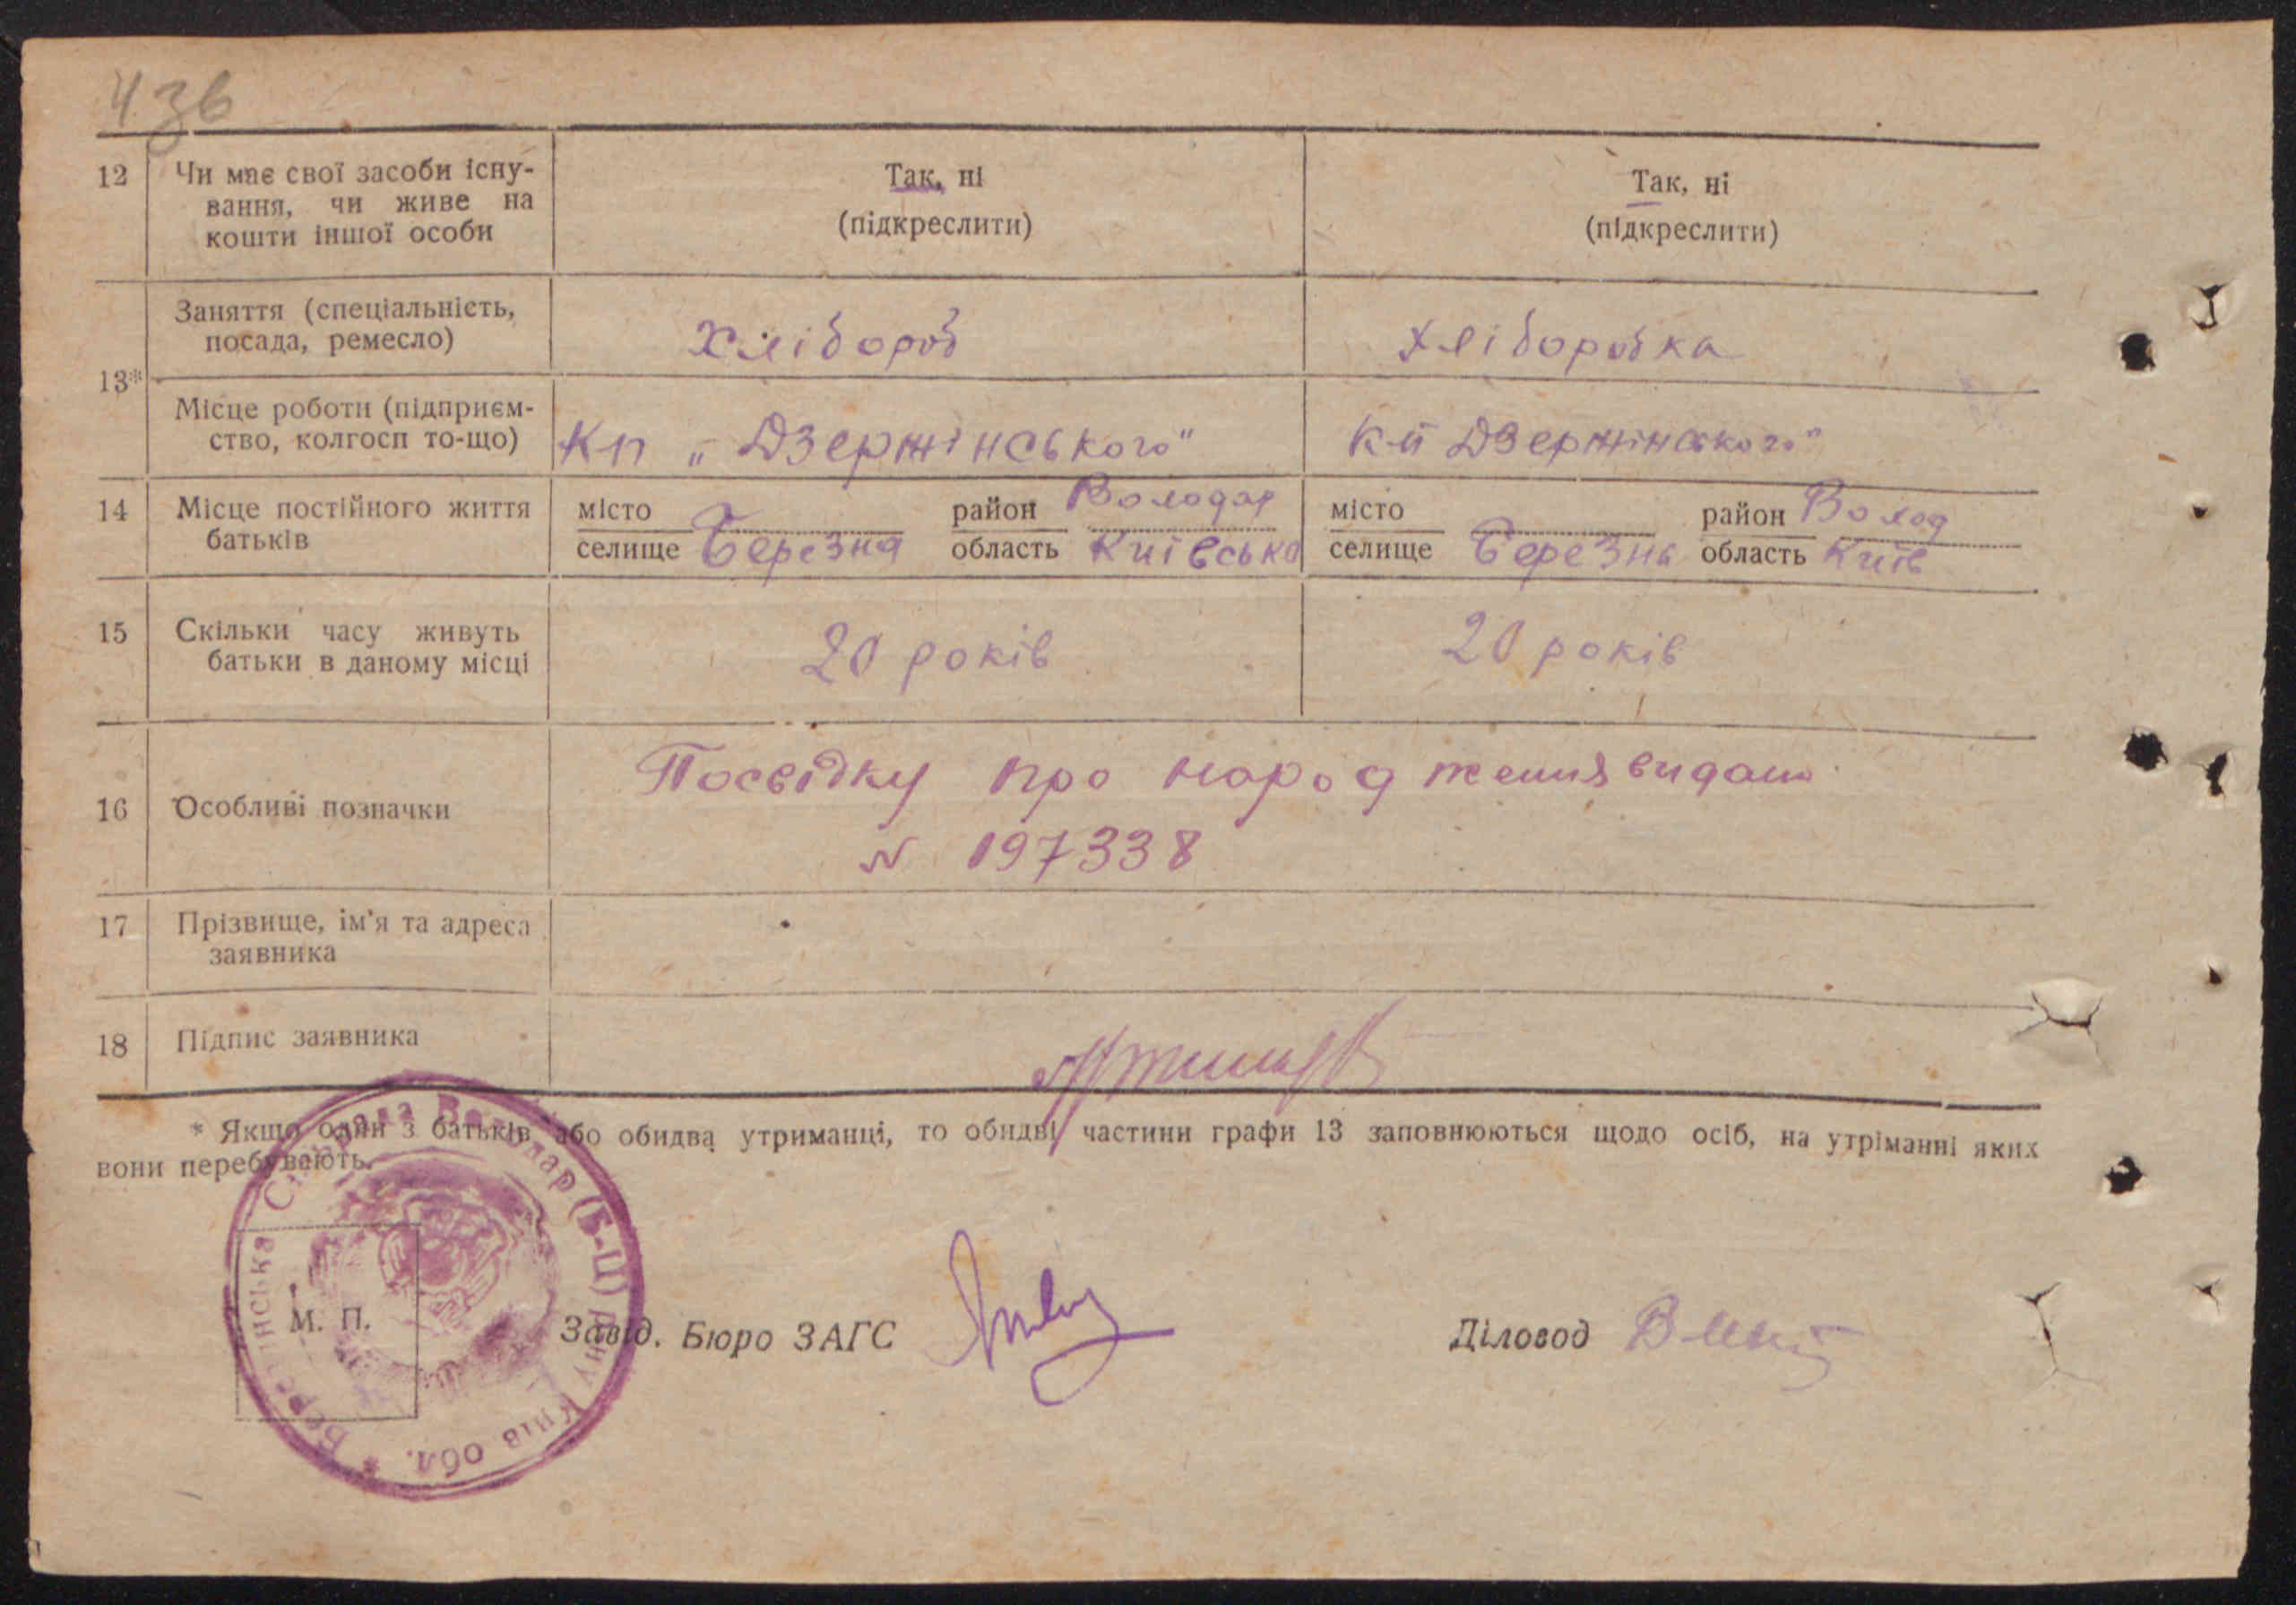 43б
12 Чи має свої засоби існу-
вання, чи живе на
кошти іншої особи
Так, ні
(підкреслити)
Так, ні
(підкреслити)
13*
Заняття (спеціальність,
посада, ремесло)
Хлібороб
Хліборобка
Місце роботи (підприєм-
ство, колгосп то-що)
Кп „Дзержінського"
Кп Дзержінського"
14 Місце постійного життя
батьків
місто
селище Березна
район Володар
область Київська
місто
селище Березна
район Волод
область Київ
15 Скільки часу живуть
батьки в даному місці
20 років
20 років
16 Особливі позначки
Посвідку про народження видано
№ 197338
17 Прізвище, ім'я та адреса
заявника
18 Підпис заявника
* Якщо один з батьків або обидва утриманці, то обидві частини графи 13 заповнюються щодо осіб, на утріманні яких
вони перебувають.
М. П.
Завід. Бюро ЗАГС
Діловод
Березнянська Сільрада Володар (Б-Ц) р-ну Київ обл. *